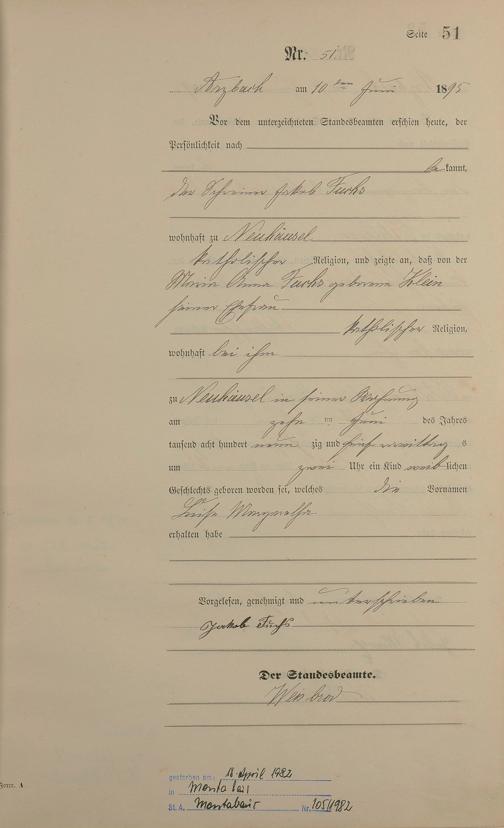 Seite 51
Nr. 51
Arzbach am 10ten Juni 1895
Vor dem unterzeichneten Standesbeamten erschien heute, der
Persönlichkeit nach
bekannt,
der Schreiner Jakob Fuchs
wohnhaft zu Neuhäusel
katholischer Religion, und zeigte an, daß von der
Maria Anna Fuchs geborene Klein
seiner Ehefrau
katholischer Religion,
wohnhaft bei ihm
zu Neuhäusel in seiner Wohnung
am zehn ten Juni des Jahres
tausend acht hundert neun zig und fünf vormittags
um zwei Uhr ein Kind weiblichen
Geschlechts geboren worden sei, welches die Vornamen
Luise Margaretha
erhalten habe
Vorgelesen, genehmigt und unterschrieben
Jakob Fuchs
Der Standesbeamte.
Weisbrod
Form. A
gestorben am: 18. April 1982
in Montabaur
St. A. Montabaur Nr. 105/1982